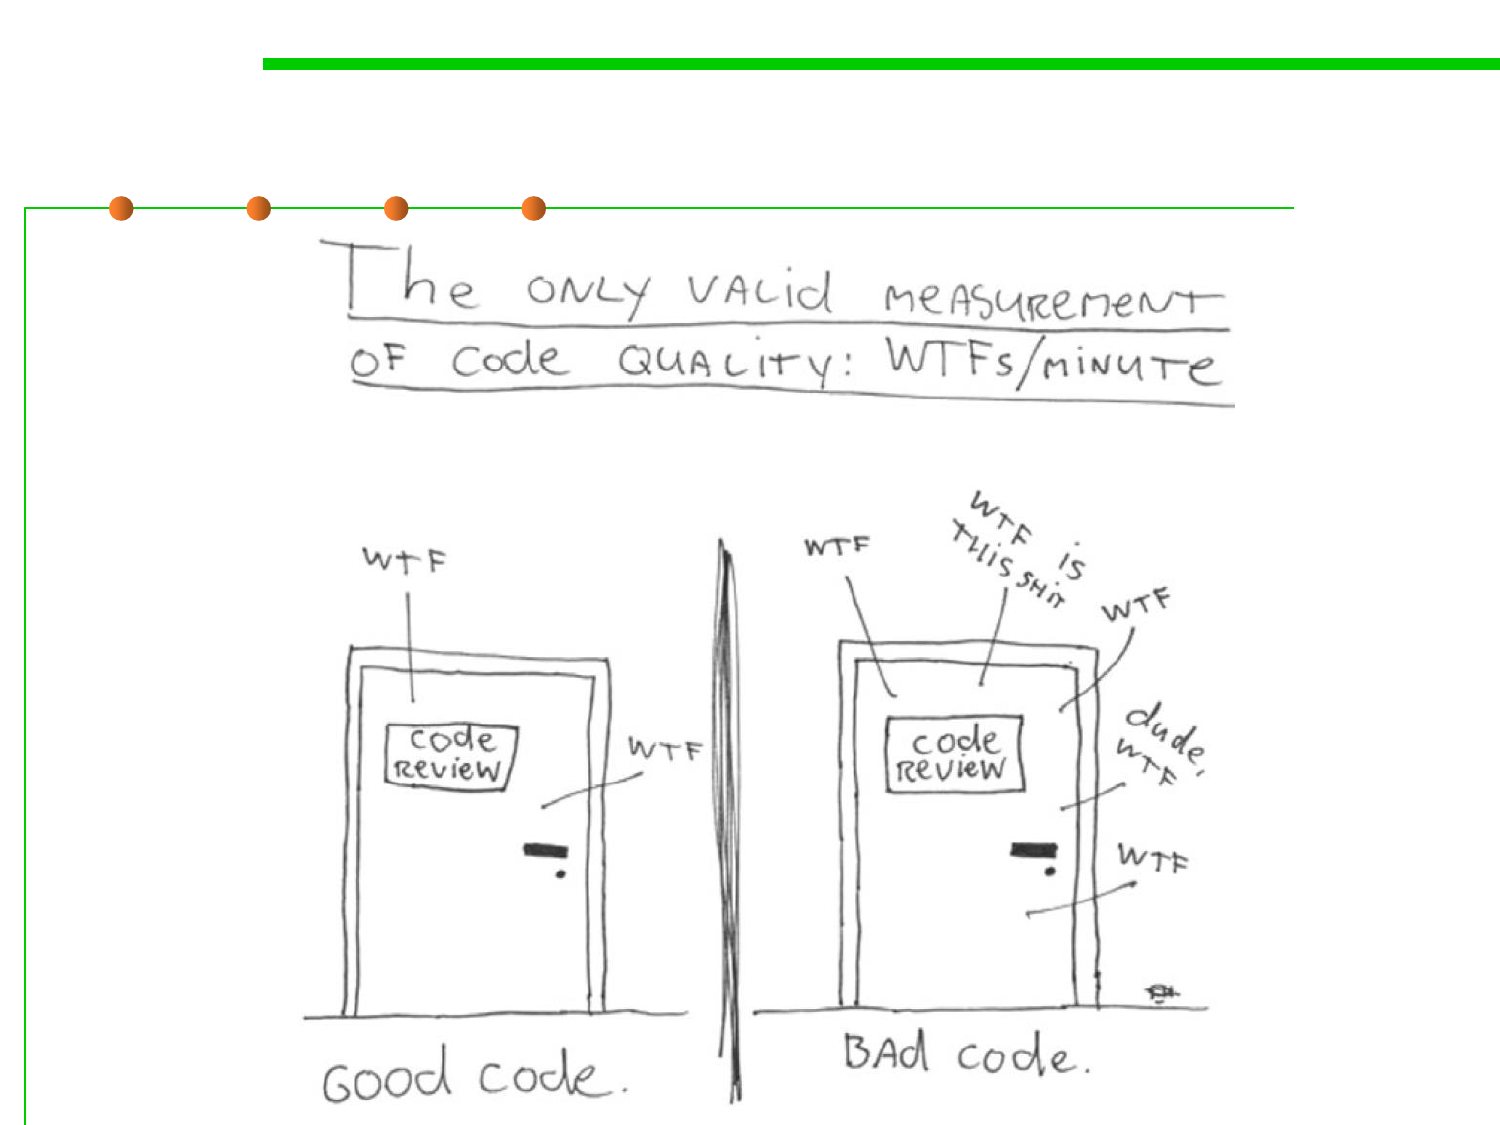 The ONLY VALid MeASUREMENT
OF Code QUALITY: WTFs/MINUTE
WTF
code
REViEW
WTF
GOOD code.
WTF
WTF is
THiS SHiT
WTF
code
REViEW
dude,
WTF
WTF
BAd code.